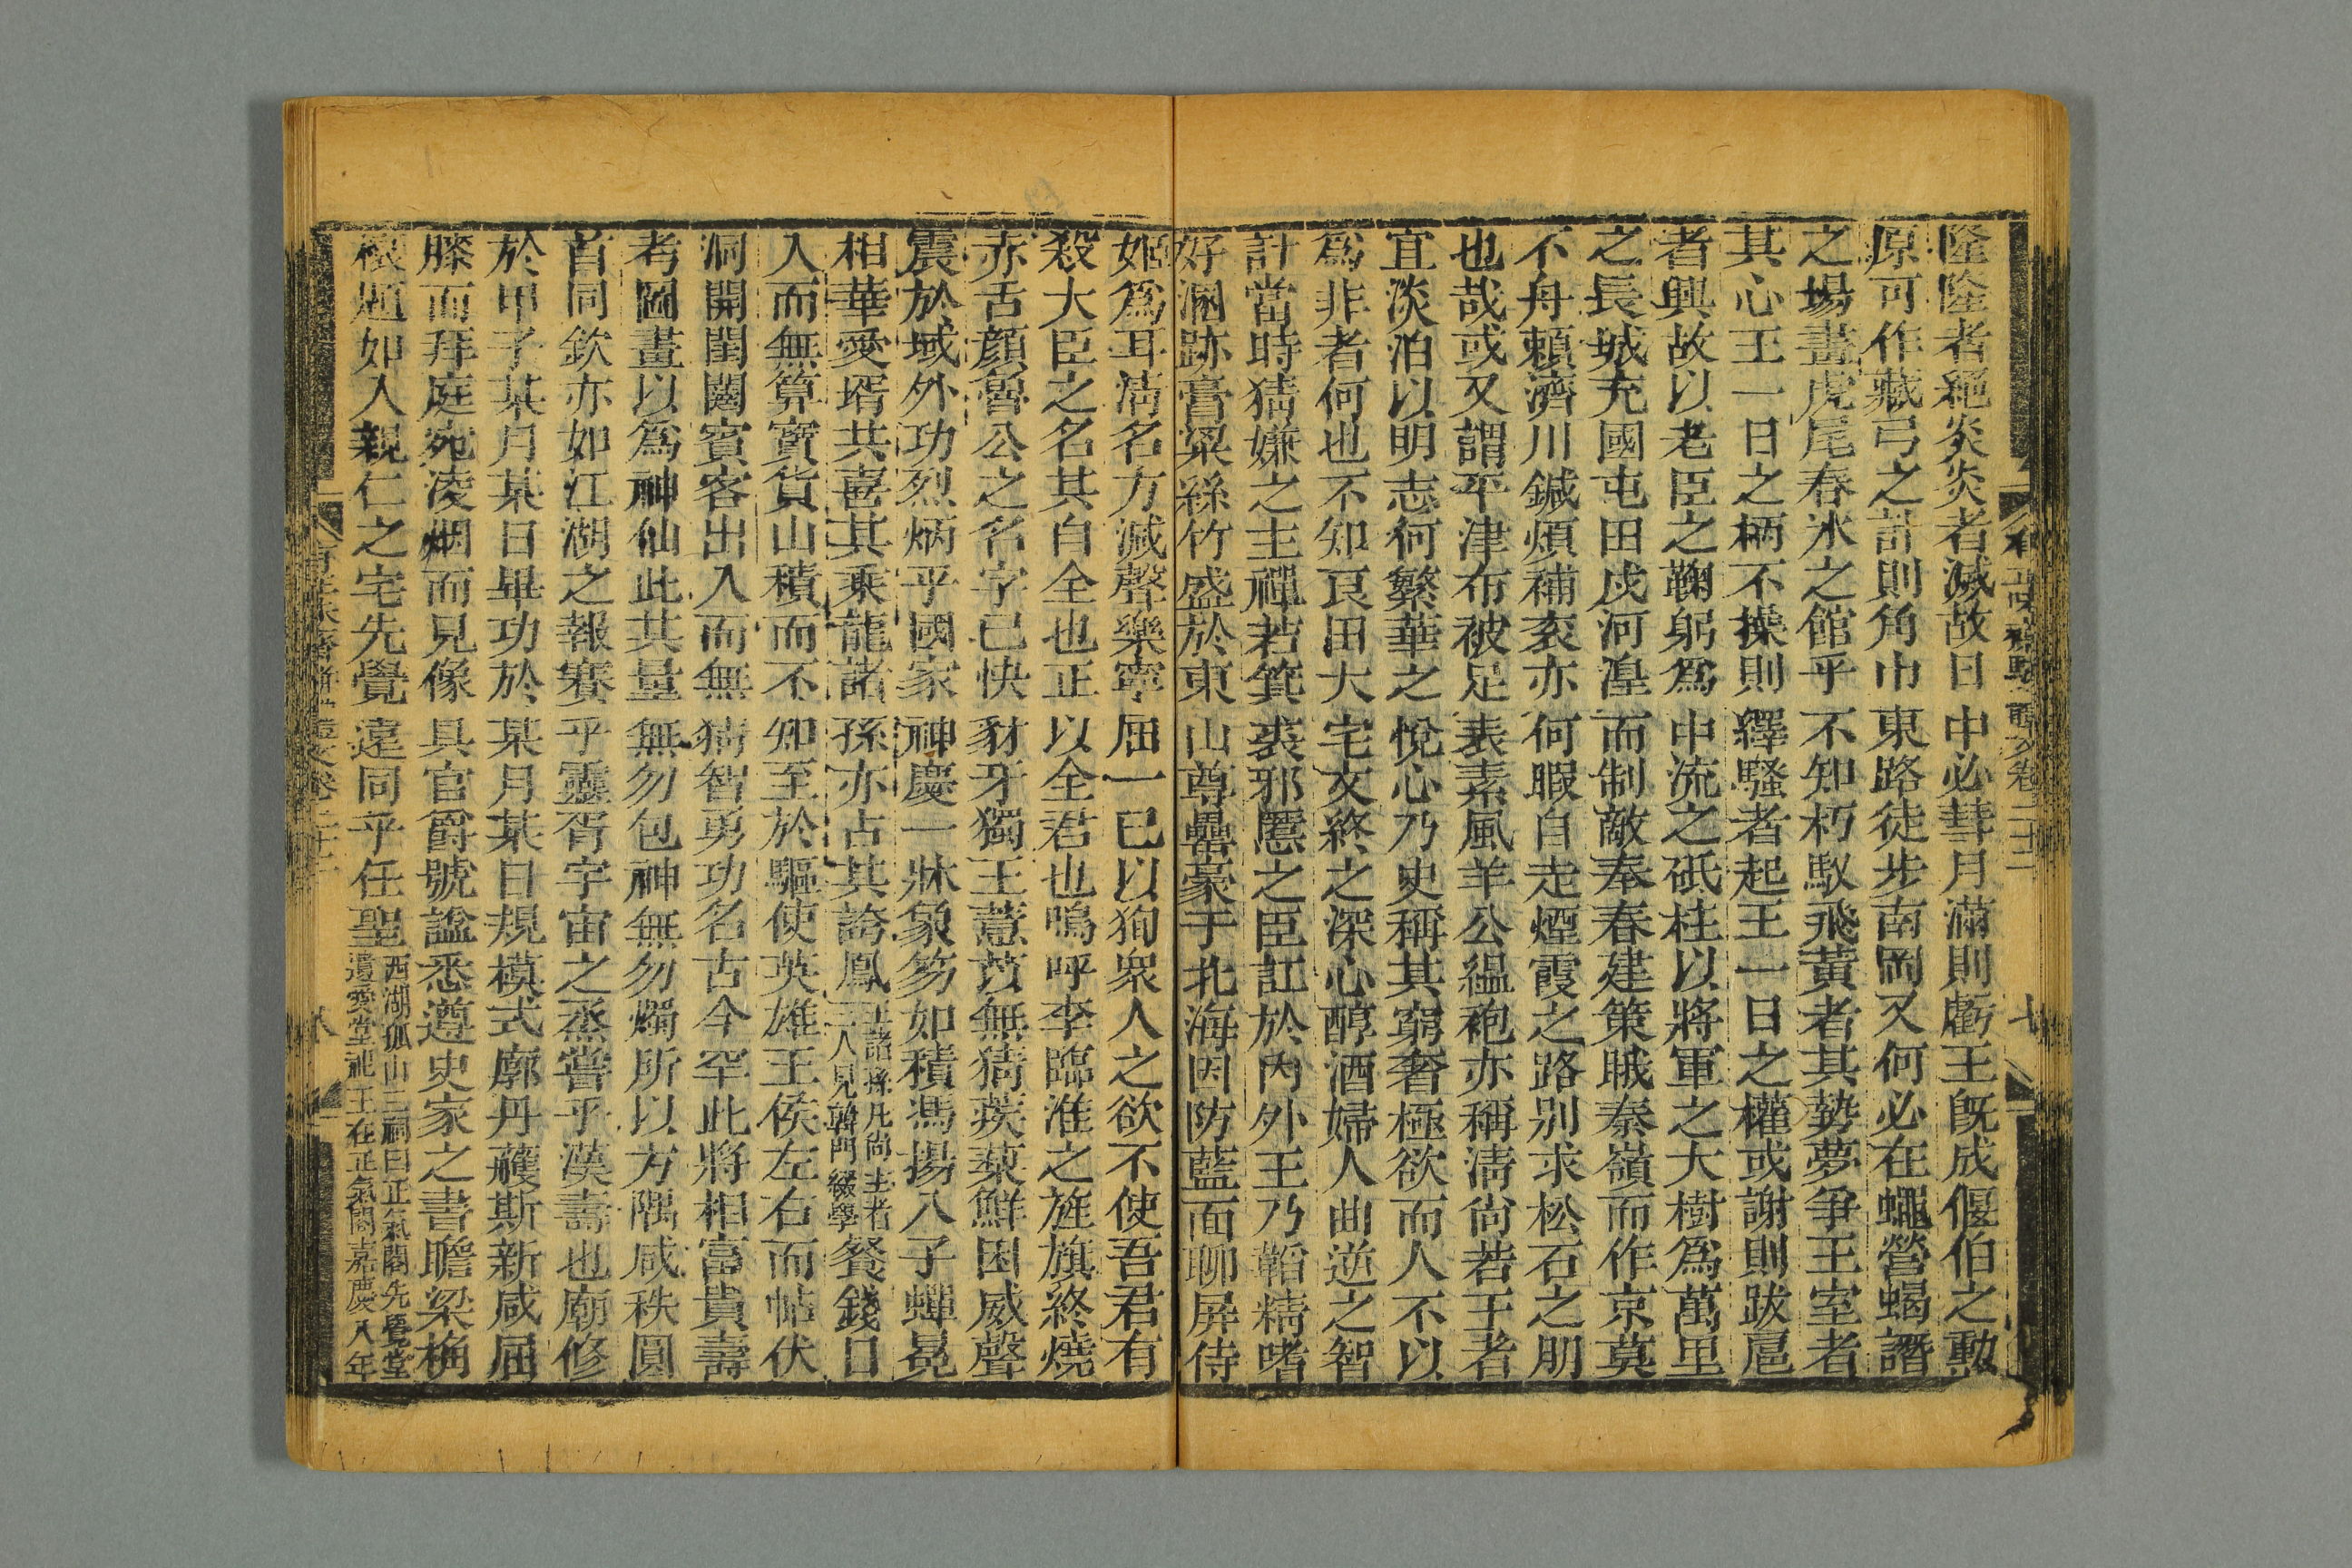 隆隆者絕炎炎者滅故日中必彗月滿則虧王既成偃伯之勳
原可作藏弓之計則角巾東路徒步南岡又何必在蠅營蝎譖
之場晝虎尾春冰之館乎不知朽馭飛黃者其勢夢爭王室者
其心王一日之柄不操則繹騷者起王一日之權或謝則跋扈
者興故以老臣之鞠躬爲中流之砥柱以將軍之大樹爲萬里
之長城充國屯田戍河湟而制敵奉春建策賊秦嶺而作京莫
不舟賴濟川鍼煩補袞亦何暇自走煙霞之路別求松石之朋
也哉或又謂平津布被足表素風羊公縕袍亦稱清尚若王者
宜淡泊以明志何繁華之悅心乃史稱其窮奢極欲而人不以
爲非者何也不知良田大宅文終之深心醇酒婦人曲逆之智
計當時猜嫌之主禪若箕裘邪慝之臣訌於內外王乃韜精嗜
好溷跡膏粱絲竹盛於東山尊罍豪于北海因防藍面聊屏侍
姬爲耳清名方減聲樂寧屈一已以狥衆人之欲不使吾君有
殺大臣之名其自全也正以全君也嗚呼李臨淮之旌旗終燒
赤舌顏魯公之名字已快豺牙獨王薏苡無猜蒺蔾鮮困威聲
震於域外功烈炳乎國家神慶一牀象笏如積馮揚八子蟬冕
相華愛壻共喜其乘龍諸孫亦占其翥鳳王諸孫凡尚主者
二人見韓門綴學餐錢日
入而無算寳貨山積而不知至於驅使英雄王侯左右而帖伏
洞開閨闥賓客出入而無猜智勇功名古今罕此將相富貴壽
考圖畫以爲神仙此其量無勿包神無勿燭所以方隅咸秩圓
首同欽亦如江湖之報賽乎靈胥宇宙之烝嘗乎漢壽也廟修
於甲子某月某日畢功於某月某日規模式廓丹雘斯新咸屈
膝而拜庭宛凌烟而見像具官爵號謚悉遵史家之書瞻梁桷
榱題如入親仁之宅先覺遠同乎任聖西湖孤山三祠曰正氣閣先覺堂
遺愛堂祀王在正氣閣嘉慶八年
卷二十二
七
八